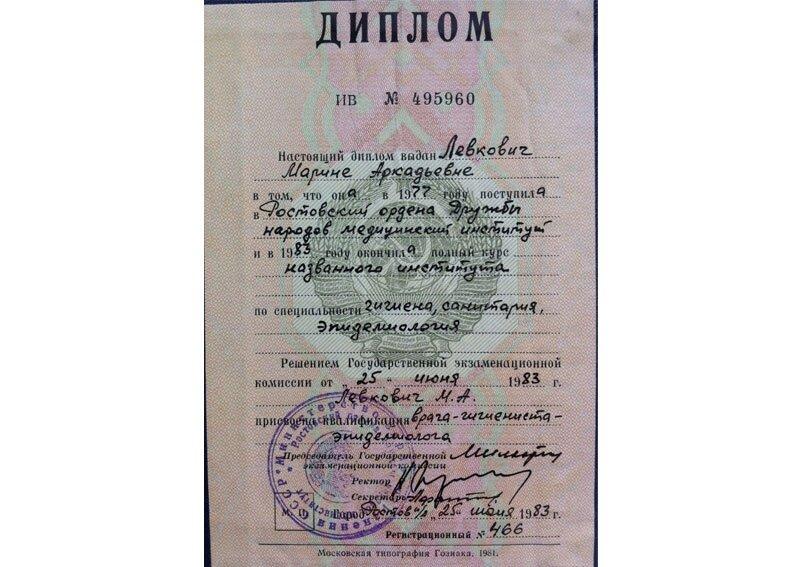 ДИПЛОМ
ИВ № 495960
Настоящий диплом выдан Левкович
Марине Аркадьевне
в том, что она в 1977 году поступила
в Ростовский ордена Дружбы
народов медицинский институт
и в 1983 году окончила полный курс
названного института
по специальности гигиена, санитария,
эпидемиология
Решением Государственной экзаменационной
комиссии от „25“ июня 1983 г.
Левкович М.А.
присвоена квалификация врача-гигиениста-
эпидемиолога
Председатель Государственной
экзаменационной комиссии
Ректор
Секретарь
М. П. Город Ростов н/Д „25“ июня 1983 г.
Регистрационный № 466
Московская типография Гознака. 1981.